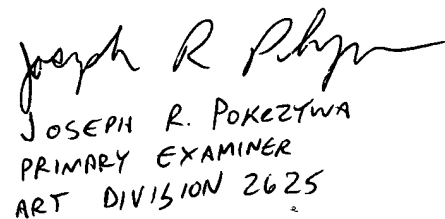 Joseph R Pokrzywa
JOSEPH R. POKRZYWA
PRIMARY EXAMINER
ART DIVISION 2625